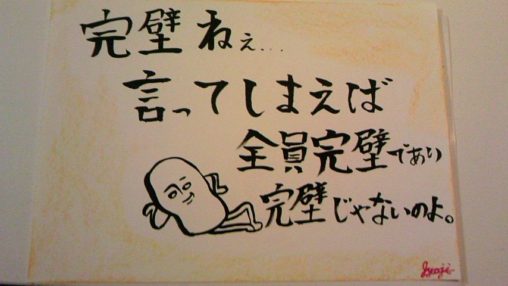 完璧ねぇ...
言ってしまえば
全員完璧であり
完璧じゃないのよ。